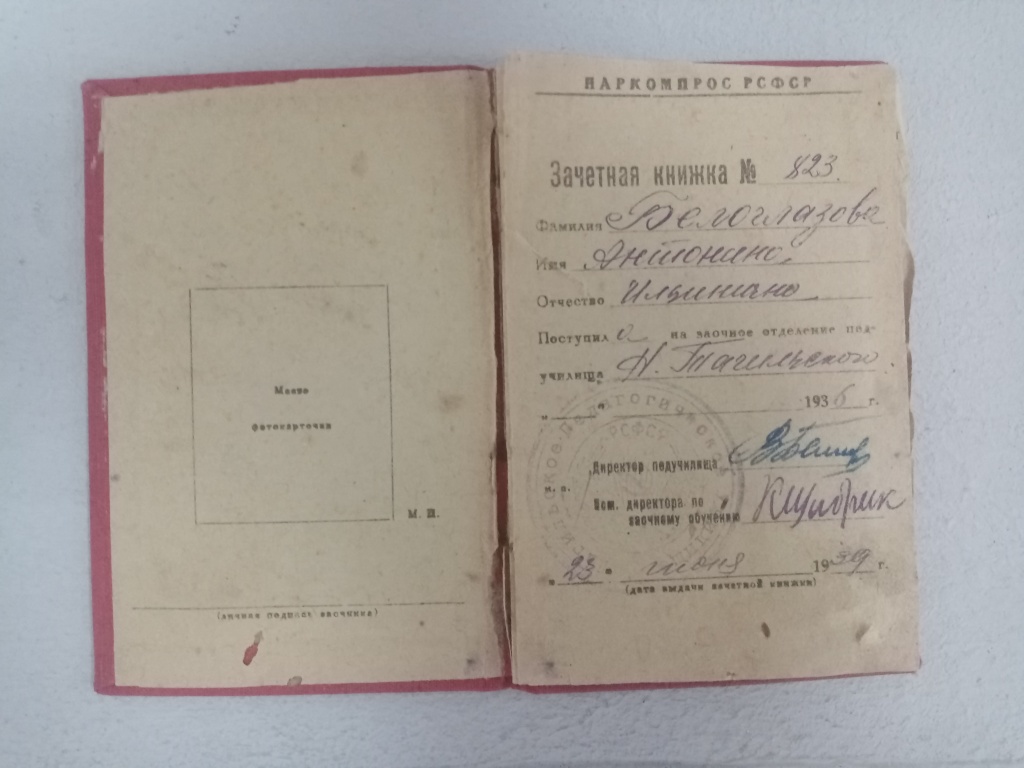 Место
фотокарточки
М. П.
(личная подпись заочника)
НАРКОМПРОС РСФСР
Зачетная книжка № 823.
Фамилия Белоглазова
Имя Антонина
Отчество Ильинична
Поступил а на заочное отделение пед-
училища Н. Тагильского
" " 1936 г.
Директор педучилища
Зам. директора по
заочному обучению
"23" июня 1939 г.
(дата выдачи зачетной книжки)